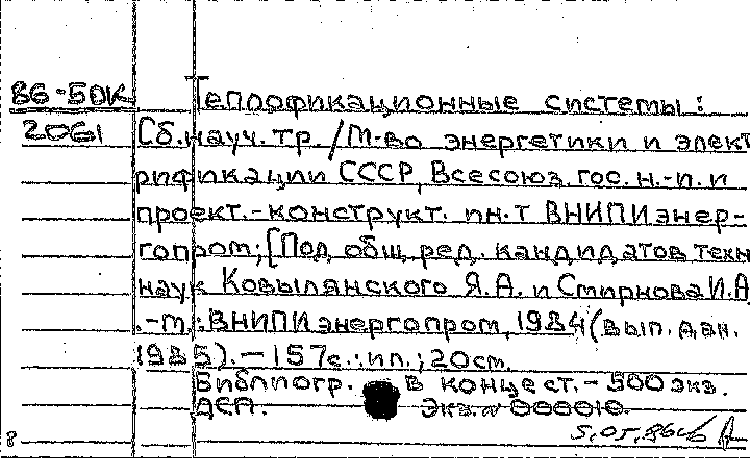 86-50К Теплофикационные системы:
2061 Сб. науч. тр. / М-во энергетики и элект
рификации СССР, Всесоюз. гос. н.-и. и
проект.-конструкт. ин.т ВНИПИэнер-
гопром; [Под общ. ред. кандидатов техн
наук Ковылянского Я.А. и Смирнова И.А
.-М.: ВНИПИэнергопром, 1984 (вып. дан.
1985). - 157 с.: ил.; 20 см.
Библиогр. в конце ст. - 500 экз.
ДСП. Экз. N 000010.
5.05.86
8